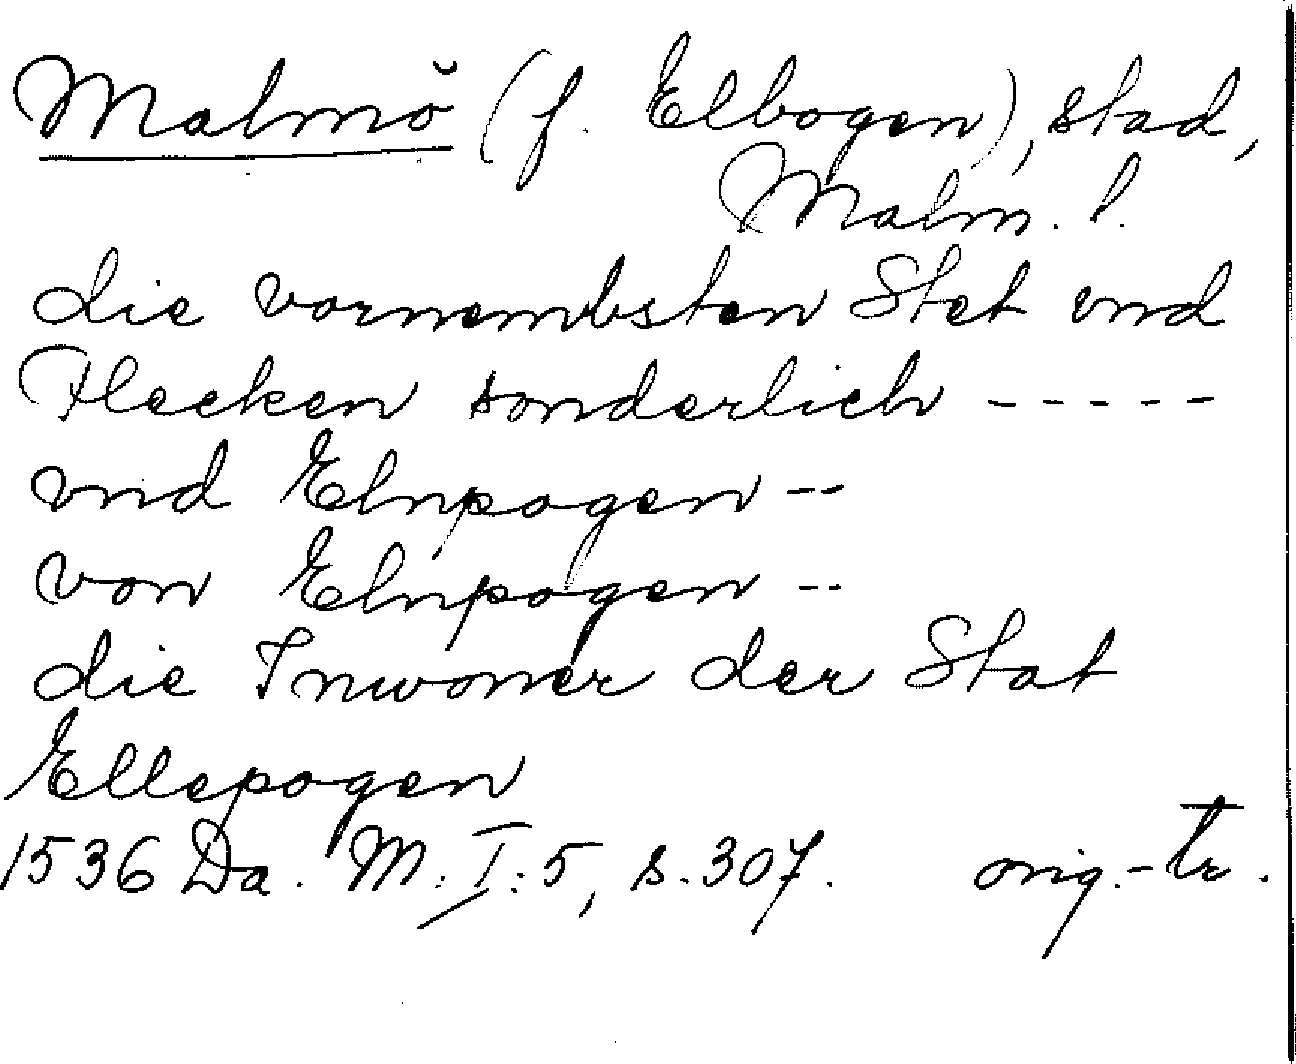 Malmö (f. Elbogen), stad,
Malm. l.
die vornembsten Stet vnd
Flecken sonderlich -----
vnd Elnpogen --
von Elnpogen --
die Inwoner der Stat
Ellepogen
1536 Da. M. I:5, s. 307. orig.-tr.